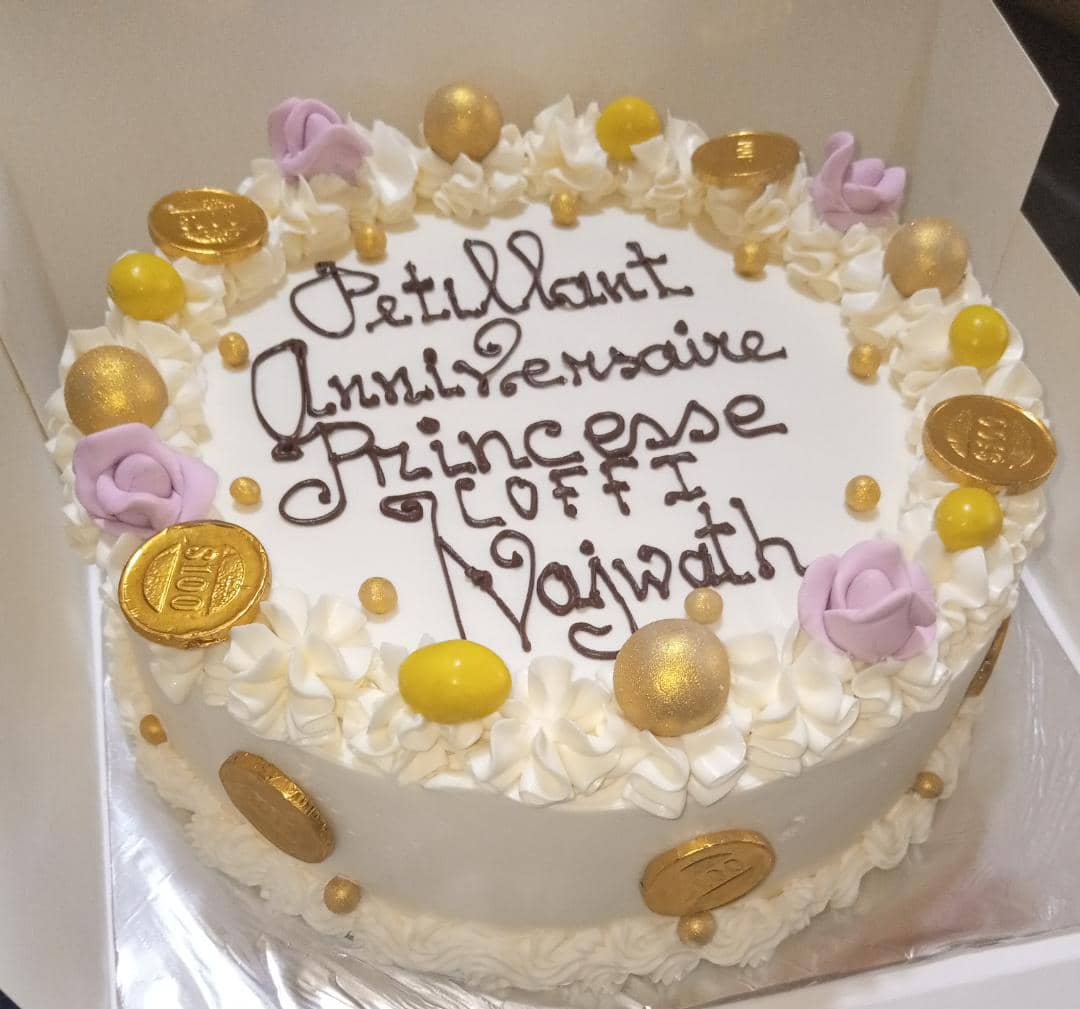 Petillant
Anniversaire
Princesse
COFFI
Najwath
$100